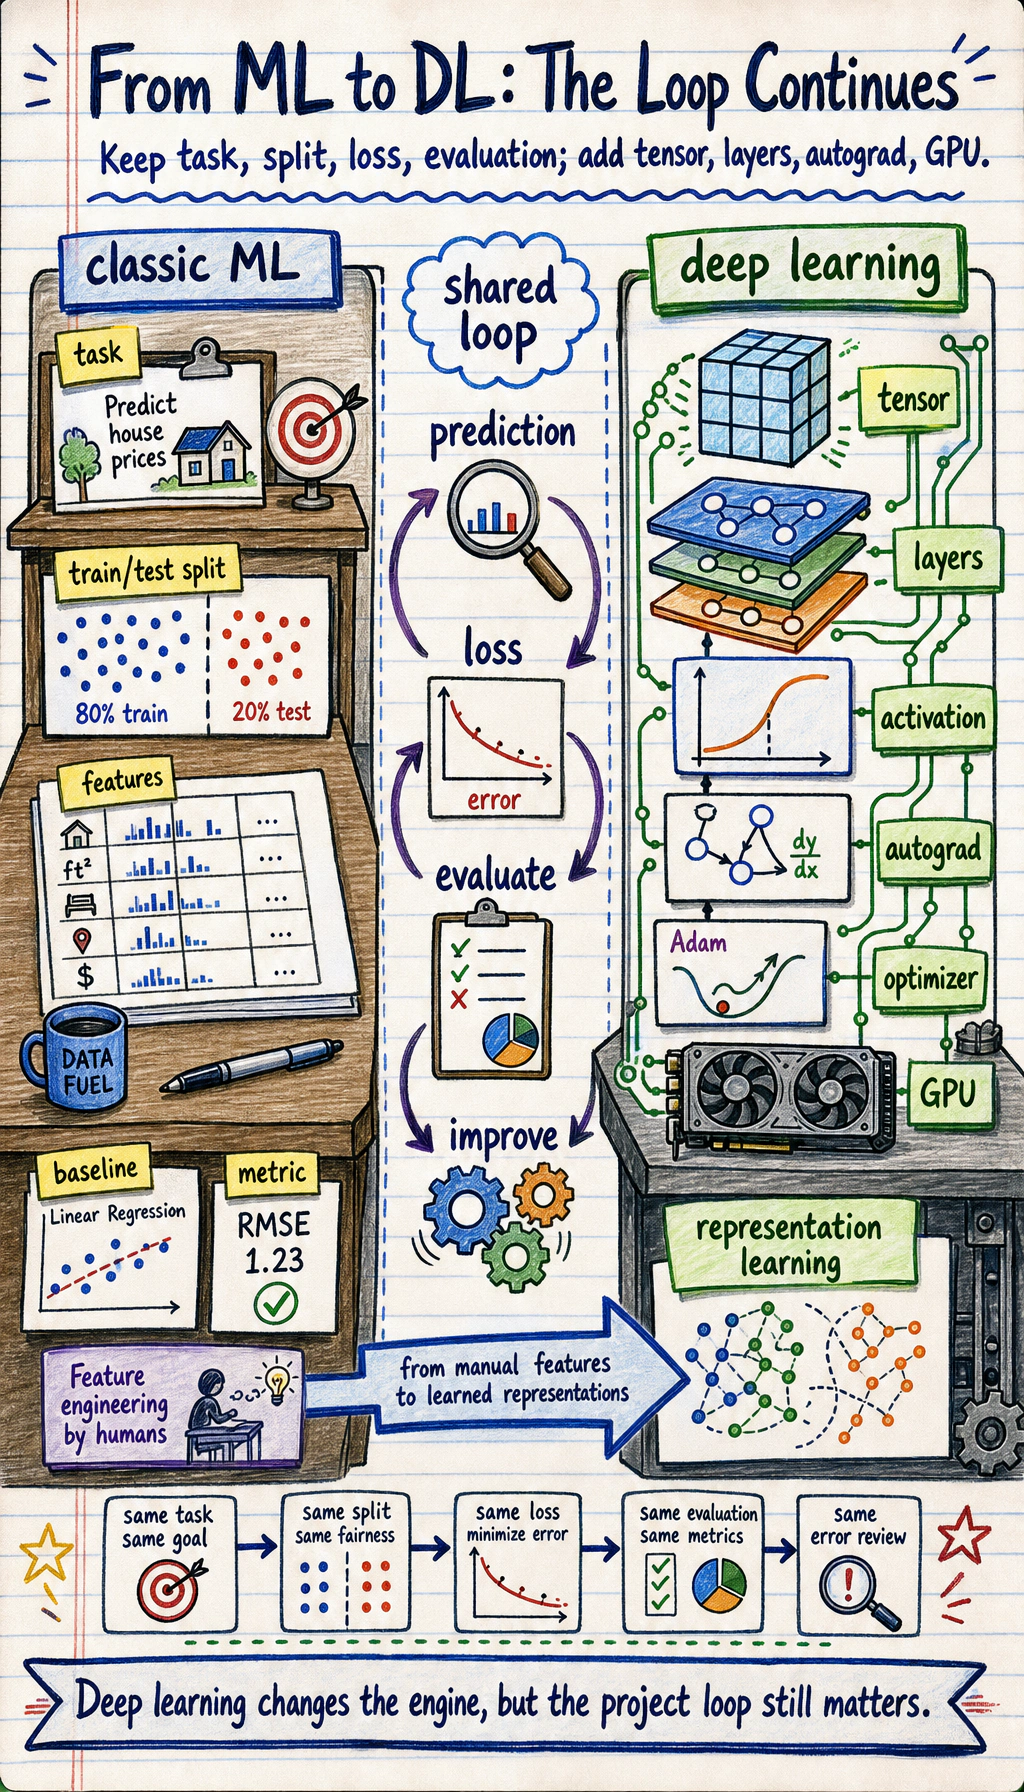 From ML to DL: The Loop Continues
Keep task, split, loss, evaluation; add tensor, layers, autograd, GPU.
classic ML
task
Predict
house
prices
train/test split
80% train
20% test
features
...
ft²
...
...
...
$
...
DATA
FUEL
baseline
Linear Regression
metric
RMSE
1.23
Feature
engineering
by humans
shared
loop
prediction
loss
error
evaluate
improve
from manual features
to learned representations
deep learning
tensor
layers
activation
dy
dx
autograd
Adam
optimizer
GPU
representation
learning
same task
same goal
same split
same fairness
same loss
minimize error
same evaluation
same metrics
same
error review
!
Deep learning changes the engine, but the project loop still matters.